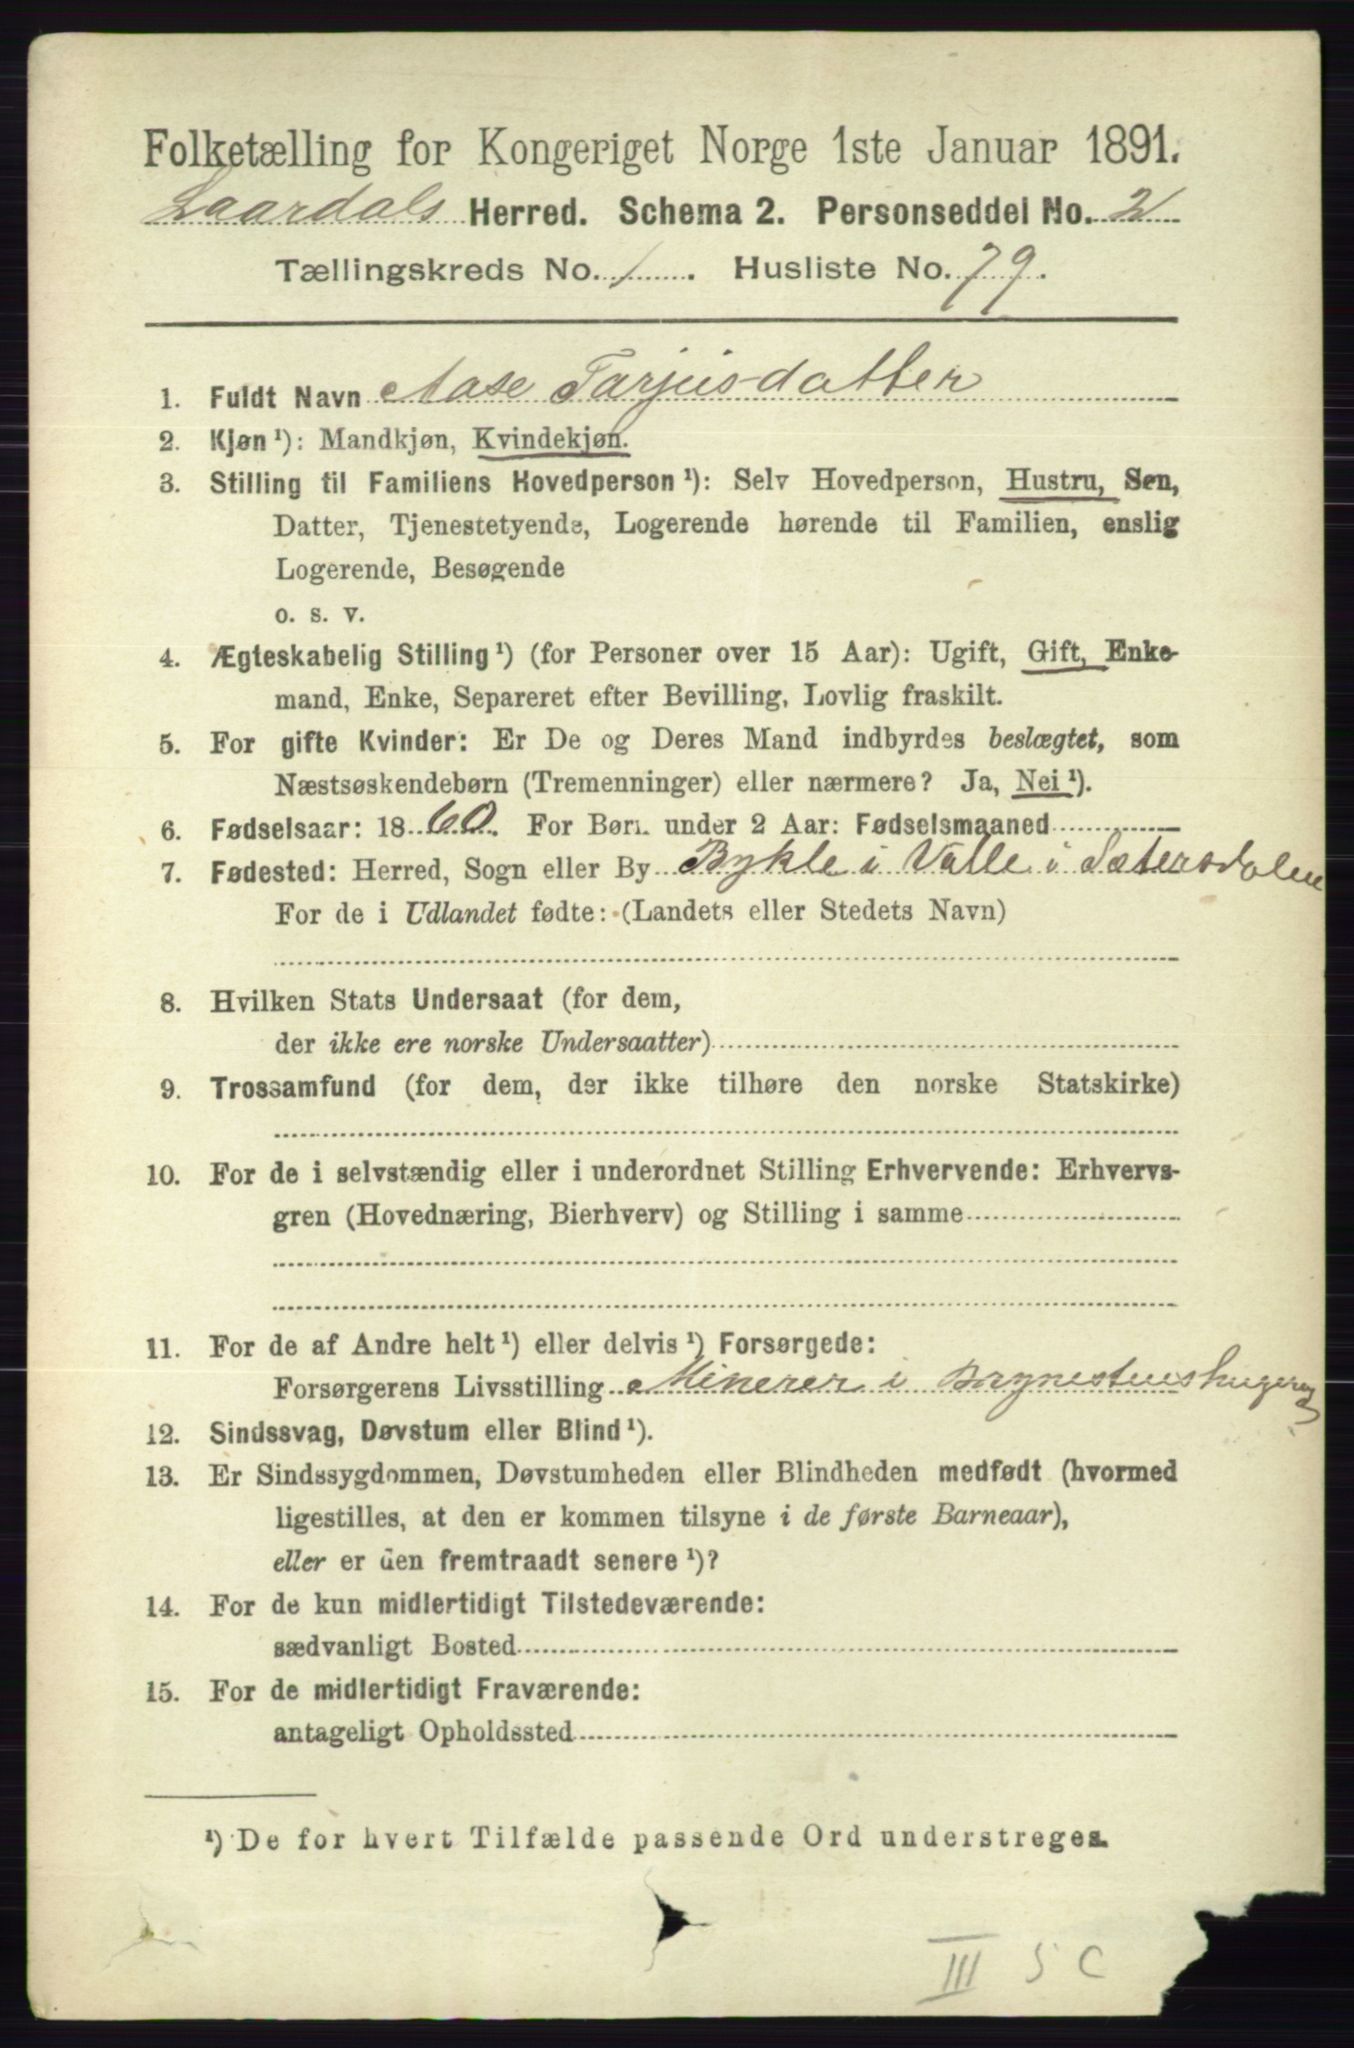 Folketælling for Kongeriget Norge 1ste Januar 1891.
Laardals Herred. Schema 2. Personseddel No. 2
Tællingskreds No. 1. Husliste No. 79.
1. Fuldt Navn Aase Tarjeisdatter
2. Kjøn¹): Mandkjøn, Kvindekjøn.
3. Stilling til Familiens Hovedperson¹): Selv Hovedperson, Hustru, Søn,
Datter, Tjenestetyende, Logerende hørende til Familien, enslig
Logerende, Besøgende
o. s. v.
4. Ægteskabelig Stilling¹) (for Personer over 15 Aar): Ugift, Gift, Enke-
mand, Enke, Separeret efter Bevilling, Lovlig fraskilt.
5. For gifte Kvinder: Er De og Deres Mand indbyrdes beslægtet, som
Næstsøskendebørn (Tremenninger) eller nærmere? Ja, Nei¹).
6. Fødselsaar: 1860. For Børn under 2 Aar: Fødselsmaaned
7. Fødested: Herred, Sogn eller By Bykle i Valle i Sætersdalen
For de i Udlandet fødte: (Landets eller Stedets Navn)
8. Hvilken Stats Undersaat (for dem,
der ikke ere norske Undersaatter)
9. Trossamfund (for dem, der ikke tilhøre den norske Statskirke)
10. For de i selvstændig eller i underordnet Stilling Erhvervende: Erhvervs-
gren (Hovednæring, Bierhverv) og Stilling i samme
11. For de af Andre helt¹) eller delvis¹) Forsørgede:
Forsørgerens Livsstilling Minerer i
12. Sindssvag, Døvstum eller Blind¹).
13. Er Sindssygdommen, Døvstumheden eller Blindheden medfødt (hvormed
ligestilles, at den er kommen tilsyne i de første Barneaar),
eller er den fremtraadt senere¹)?
14. For de kun midlertidigt Tilstedeværende:
sædvanligt Bosted
15. For de midlertidigt Fraværende:
antageligt Opholdssted
¹) De for hvert Tilfælde passende Ord understreges.
III 5 C